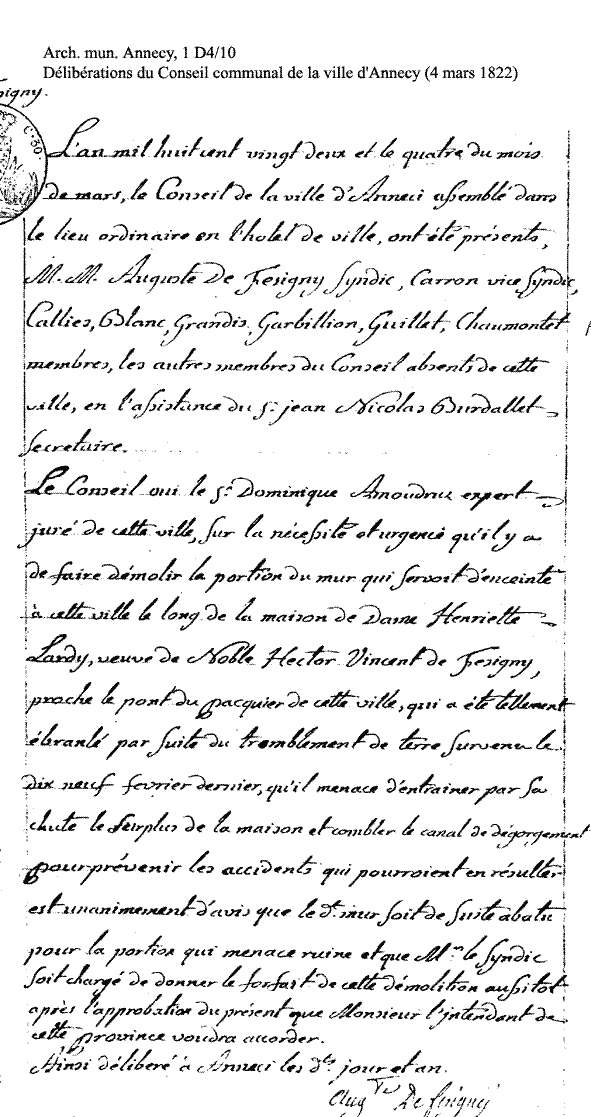 Arch. mun. Annecy, 1 D4/10
Délibérations du Conseil communal de la ville d'Annecy (4 mars 1822)
C. 30.
L'an mil huit cent vingt deux et le quatre du mois
de mars, le Conseil de la ville d'Anneci assemblé dans
le lieu ordinaire en l'hotel de ville, ont été présents,
M.M. Auguste De Fesigny Syndic, Carron vice Syndic,
Callies, Blanc, Grandis, Garbillion, Guillet, Chaumontet
membres, les autres membres du Conseil absents de cette
ville, en l'assistance du Sr. jean Nicolas Burdallet
Secretaire.
Le Conseil oui le Sr. Dominique Amoudruz expert
juré de cette ville, sur la nécessité et urgence qu'il y a
de faire démolir la portion du mur qui servoit d'enceinte
à cette ville le long de la maison de Dame Henriette
Lardy, veuve de Noble Hector Vincent de Fesigny,
proche le pont du pacquier de cette ville, qui a été tellement
ébranlé par suite du tremblement de terre survenu le
dix neuf fevrier dernier, qu'il menace d'entrainer par sa
chute le Surplus de la maison et combler le canal de dégorgement
pour prévenir les accidents qui pourroient en résulter
est unanimement d'avis que le dt. mur soit de suite abatu
pour la portion qui menace ruine et que Mr. le Syndic
soit chargé de donner le forfait de cette démolition aussitot
après l'approbation du présent que Monsieur l'intendant de
cette province voudra accorder.
Ainsi délibéré à Anneci les dts. jour et an.
Augte De fesigny